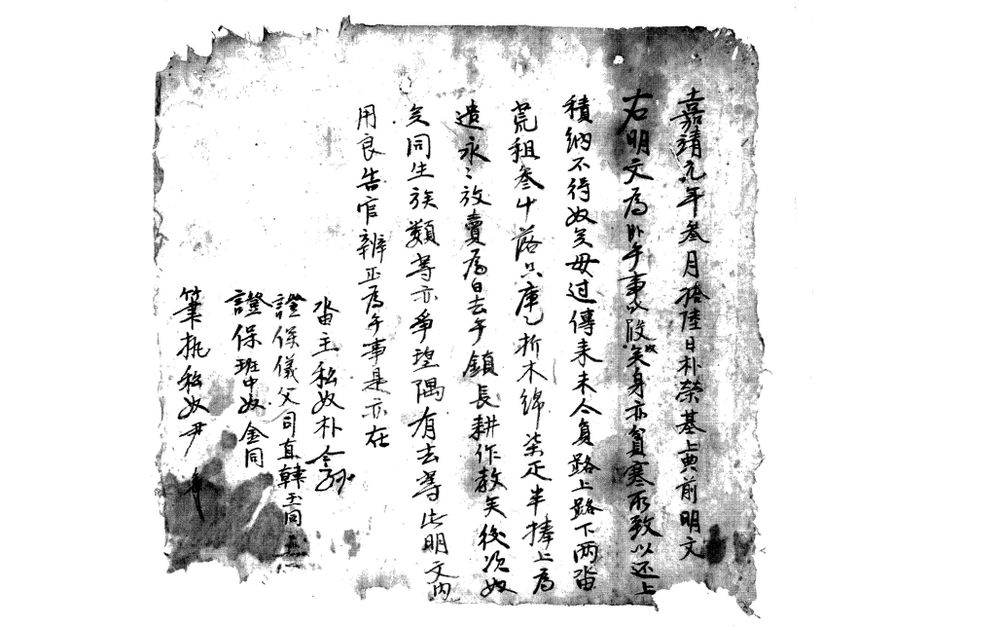 嘉靖元年叁月拾陸日朴榮基上典前明文
右明文爲卧乎事段矣身亦貧寒所致以还上
積納不得奴矣母过傳来未今員路上路下两畓
荒租叁斗落只庫乙折木綿柒疋半捧上爲
遣永〻放賣爲白去乎鎮長耕作教矣後次奴
矣同生族類等亦爭望隅有去等此明文內
用良告官辨正爲乎事是亦在
畓主私奴朴
證保儀父司直韓玉同
證保班中奴金同
筆執私奴尹